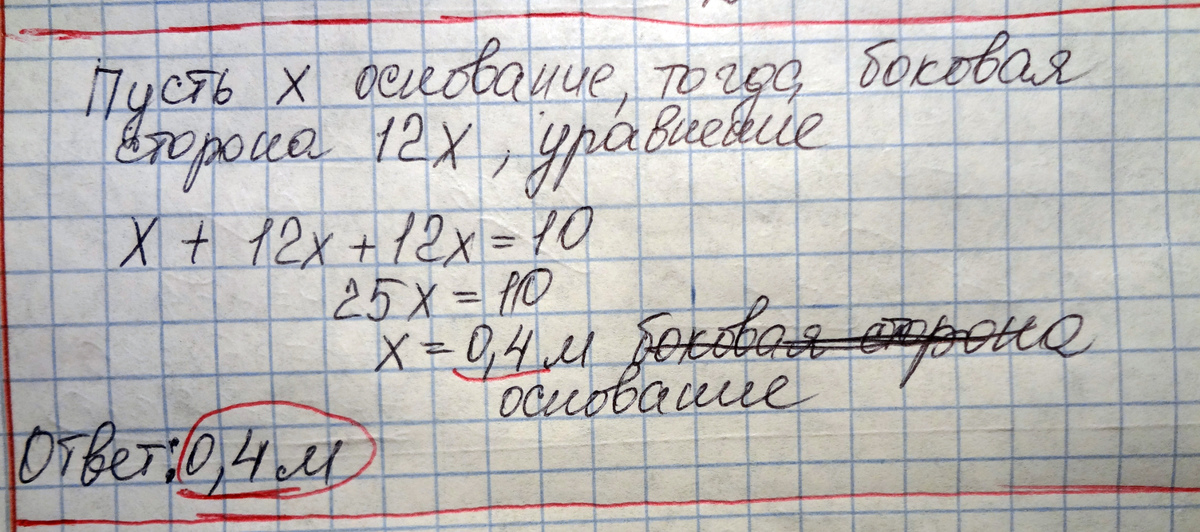 Пусть х основание, тогда боковая
сторона 12х, уравнение
х + 12х + 12х = 10
25х = 10
х = 0,4 м боковая сторона
основание
Ответ: 0,4 м